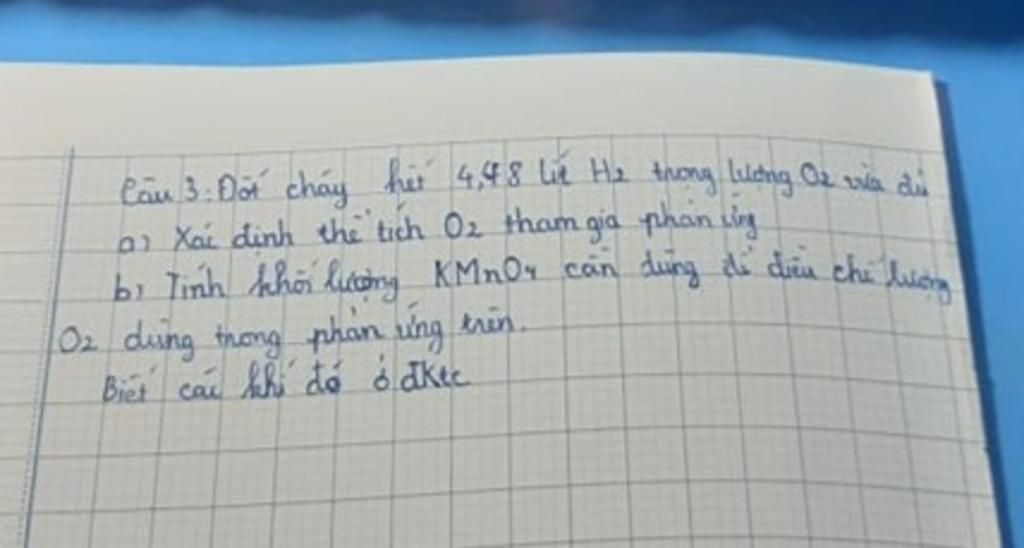 Câu 3: Đốt cháy hết 4,48 lít H2 trong lượng O2 vừa đủ
a) Xác định thể tích O2 tham gia phản ứng
b) Tính khối lượng KMnO4 cần dùng để điều chế lượng
O2 dùng trong phản ứng trên.
Biết các khí đó ở đktc